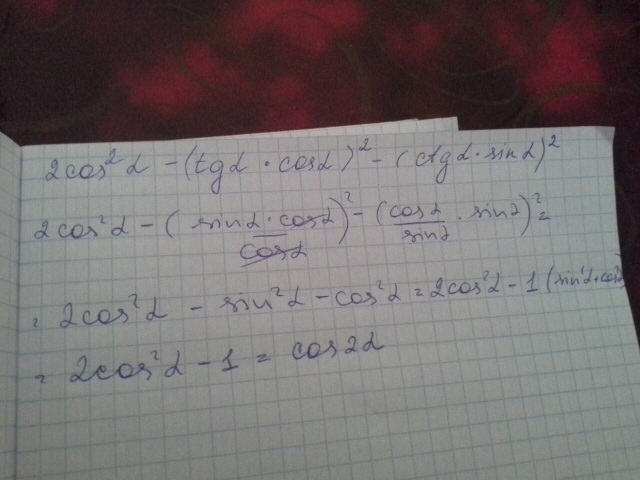 2cos²α - (tgα · cosα)² - (ctgα · sinα)²
2cos²α - (sinα · cosα / cosα)² - (cosα / sinα · sinα)² =
= 2cos²α - sin²α - cos²α = 2cos²α - 1 (sin²α + cos²α
= 2cos²α - 1 = cos2α